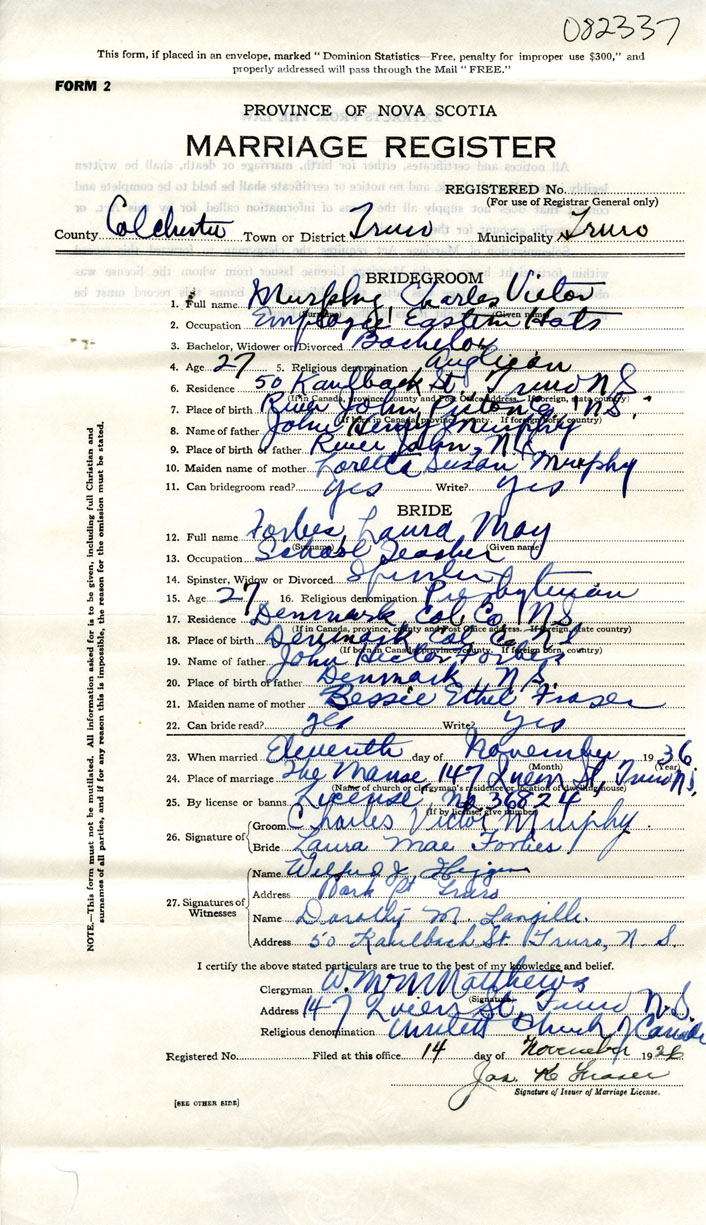 082337
This form, if placed in an envelope, marked "Dominion Statistics—Free, penalty for improper use $300," and
properly addressed will pass through the Mail "FREE."
FORM 2
PROVINCE OF NOVA SCOTIA
MARRIAGE REGISTER
REGISTERED No.
(For use of Registrar General only)
County Colchester Town or District Truro Municipality Truro
BRIDEGROOM
1. Full name Murphy, Charles Victor
(Surname) (Given name)
2. Occupation Employee Eastern Hats
3. Bachelor, Widower or Divorced Bachelor
4. Age 27 5. Religious denomination Anglican
6. Residence 50 Kaulback St. Truro N S
(If in Canada, province, county and Post Office address. If foreign, state country)
7. Place of birth River John, Pictou Co, N S.
(If born in Canada, province, county. If foreign born, country)
8. Name of father John Henry Murphy
9. Place of birth of father River John, N.S.
10. Maiden name of mother Loretta Susan Murphy
11. Can bridegroom read? yes Write? yes
BRIDE
12. Full name Forbes, Laura May
(Surname) (Given name)
13. Occupation School Teacher
14. Spinster, Widow or Divorced Spinster
15. Age 27 16. Religious denomination Presbyterian
17. Residence Denmark Col. Co. N S
(If in Canada, province, county and Post Office address. If foreign, state country)
18. Place of birth Denmark Col. Co. N S
(If born in Canada, province, county. If foreign born, country)
19. Name of father John Hector Forbes
20. Place of birth of father Denmark, N.S.
21. Maiden name of mother Bessie Ethel Fraser
22. Can bride read? yes Write? yes
23. When married Eleventh day of November 1936
(Month) (Year)
24. Place of marriage The Manse 147 Queen St, Truro N.S.
(Name of church or clergyman's residence or location of dwelling house)
25. By license or banns License, No. 36824
(If by license, give number)
26. Signature of Groom Charles Victor Murphy.
Bride Laura Mae Forbes
27. Signatures of Witnesses Name Wilfred J. Higgins
Address Park St Truro
Name Dorothy M. Langille.
Address 50 Kaulback St. Truro, N. S.
I certify the above stated particulars are true to the best of my knowledge and belief.
Clergyman W. M. Matthews
(Signature)
Address 147 Queen St., Truro N.S.
Religious denomination United Church of Canada
Registered No. Filed at this office 14 day of November 1936
Jas. K. Fraser
Signature of Issuer of Marriage License.
[SEE OTHER SIDE]
NOTE.—This form must not be mutilated. All information asked for is to be given, including full Christian and
surnames of all parties, and if for any reason this is impossible, the reason for the omission must be stated.